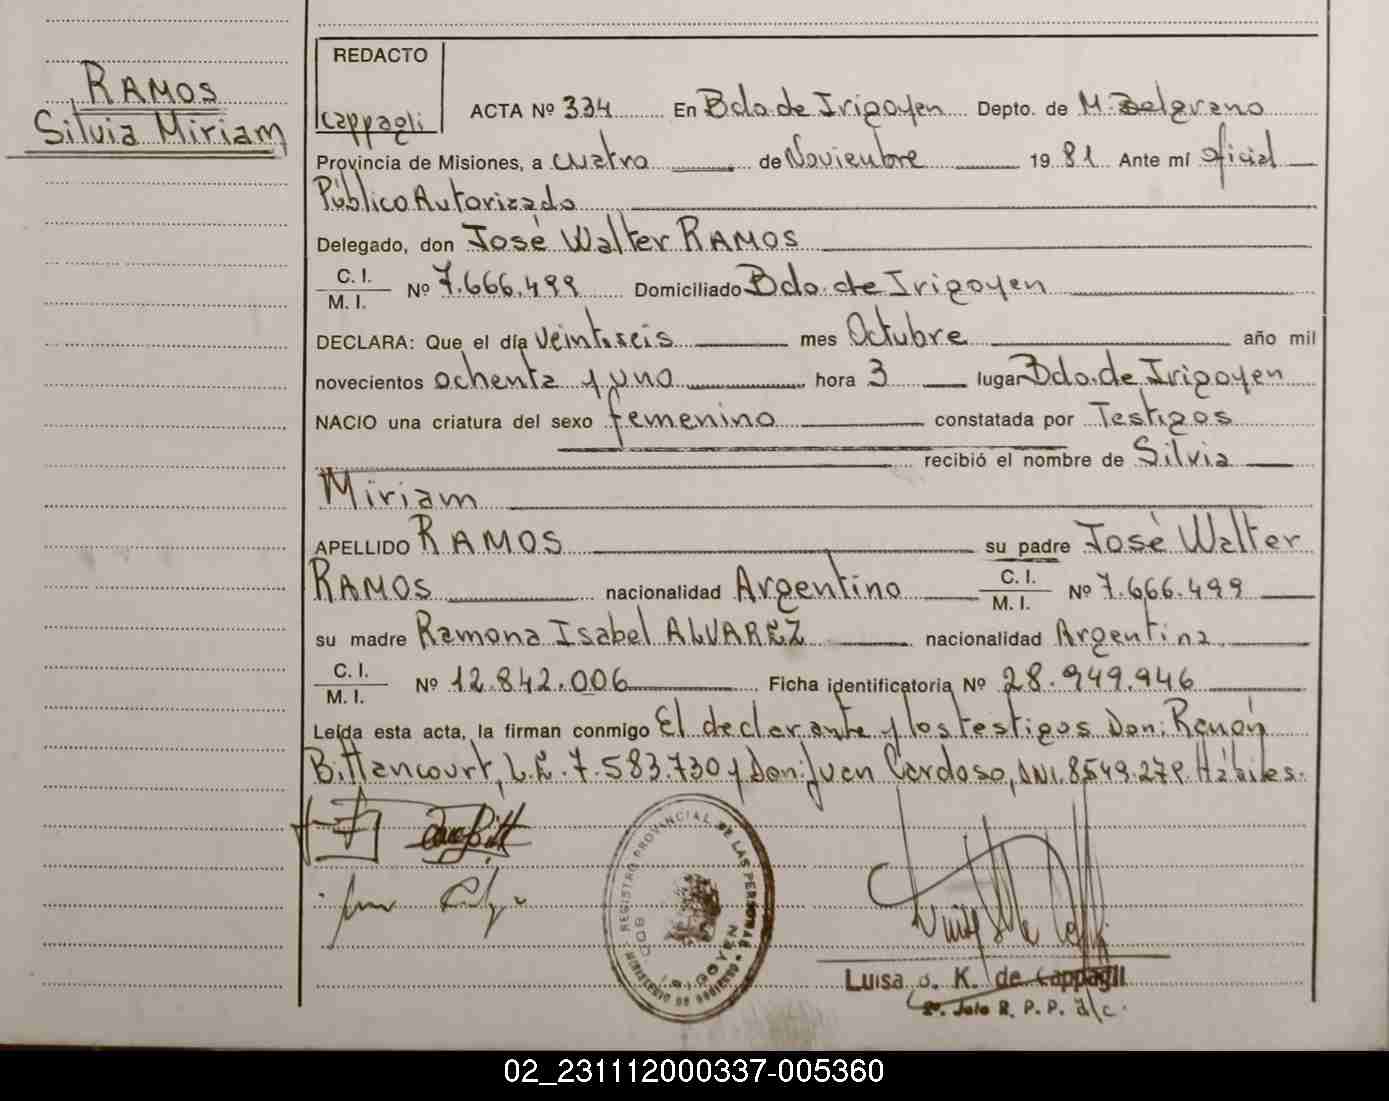 RAMOS
Silvia Miriam
REDACTO
Cappagli
ACTA Nº 334 En Bdo. de Irigoyen Depto. de M. Belgrano
Provincia de Misiones, a cuatro de Noviembre 1981 Ante mí oficial
Público Autorizado
Delegado, don José Walter RAMOS
C. I.
M. I. Nº 7.666.499 Domiciliado Bdo. de Irigoyen
DECLARA: Que el día veintiseis mes Octubre año mil
novecientos ochenta y uno hora 3 lugar Bdo. de Irigoyen
NACIO una criatura del sexo femenino constatada por Testigos
recibió el nombre de Silvia
Miriam
APELLIDO RAMOS su padre José Walter
RAMOS nacionalidad Argentino C. I. M. I. Nº 7.666.499
su madre Ramona Isabel ALVAREZ nacionalidad Argentina
C. I.
M. I. Nº 12.842.006 Ficha identificatoria Nº 28.949.946
Leída esta acta, la firman conmigo El declarante y los testigos Don: Ramón
Bittencourt, L.E. 7.583.730 y Don: Juan Cardoso, DNI. 8549.279. Hábiles.
REGISTRO PROVINCIAL DE LAS PERSONAS
MINISTERIO DE GOBIERNO
BDO. IRIGOYEN
Luisa K. de Cappagli
2º. Jefe R. P. P. a/c.
02_231112000337-005360